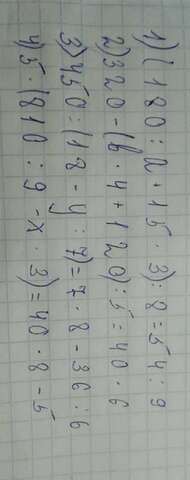 1) (180 : a + 15 · 3) : 8 = 54 : 9
2) 320 - (b · 4 + 120) : 5 = 40 · 6
3) 450 : (12 - y : 7) = 7 · 8 - 36 : 6
4) 5 · (810 : 9 - x · 3) = 40 · 8 - 5